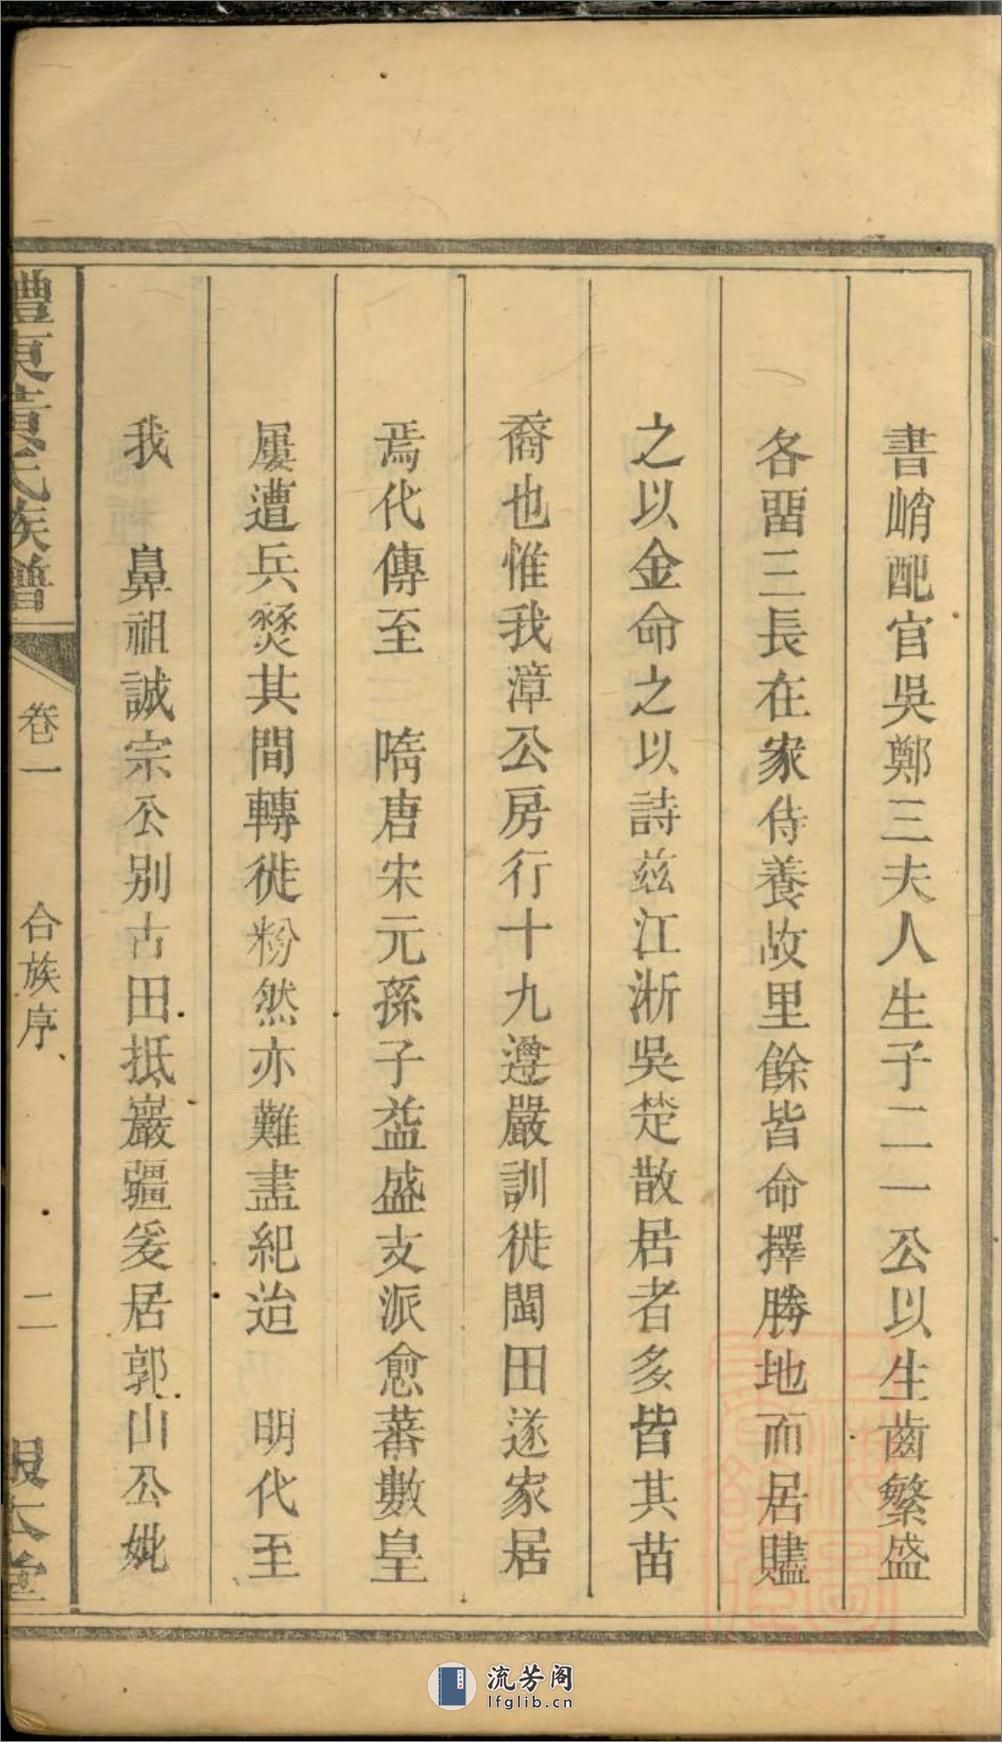 書峭配官吳鄭三夫人生子二一公以生齒繁盛
各畱三長在家侍養故里餘皆命擇勝地而居贐
之以金命之以詩兹江淅吳楚散居者多皆其苗
裔也惟我漳公房行十九遵嚴訓徙閩田遂家居
焉代傳至 隋唐宋元孫子益盛支派愈蕃數皇
屢遭兵燹其間轉徙粉然亦難盡紀迨 明代至
我 鼻祖誠宗公別古田抵巖疆爰居郭山公妣
東黃氏族譜 卷一 合族序 二 報本堂
流芳阁
lfglib.cn